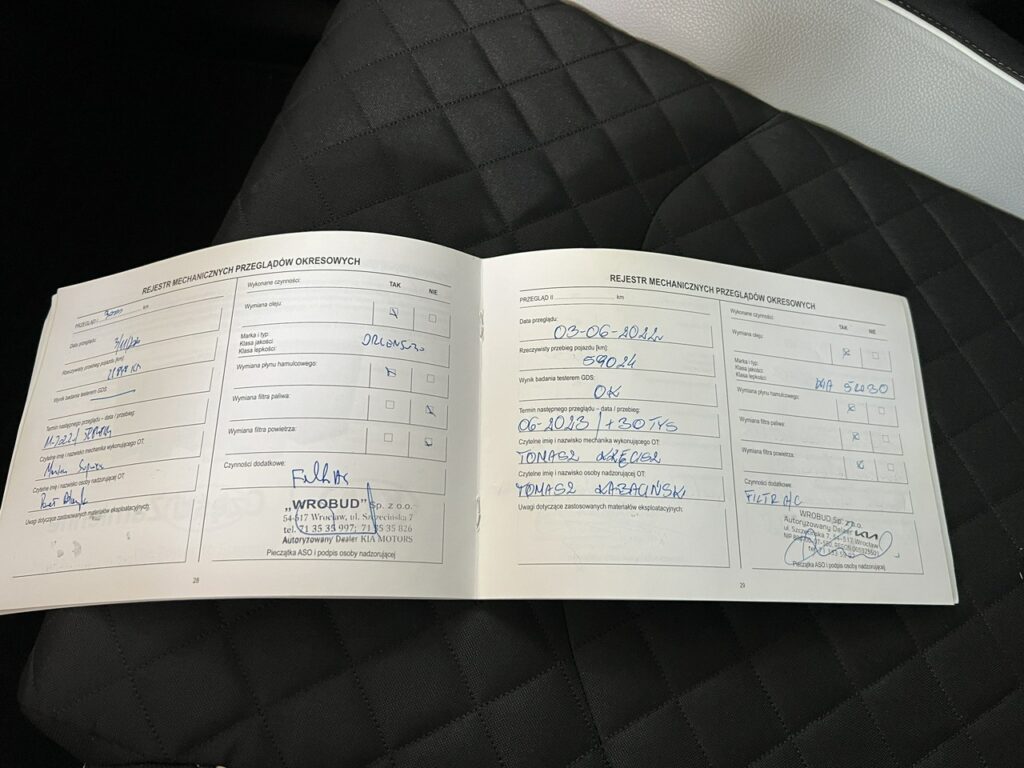 REJESTR MECHANICZNYCH PRZEGLĄDÓW OKRESOWYCH
PRZEGLĄD I km
Data przeglądu:
Rzeczywisty przebieg pojazdu [km]
Wynik badania testerem GDS:
Termin następnego przeglądu – data / przebieg:
Czytelne imię i nazwisko mechanika wykonującego OT:
Czytelne imię i nazwisko osoby nadzorującej OT:
Uwagi dotyczące zastosowanych materiałów eksploatacyjnych:
Wykonane czynności: TAK NIE
Wymiana oleju:
Marka i typ:
Klasa jakości
Klasa lepkości
Wymiana płynu hamulcowego:
Wymiana filtra paliwa:
Wymiana filtra powietrza:
Czynności dodatkowe:
„WROBUD” Sp. z o.o.
54-517 Wrocław, ul. Szczecińska 7
tel. 71 35 35 997; 71 35 35 826
Autoryzowany Dealer KIA MOTORS
Pieczątka ASO i podpis osoby nadzorującej
28
REJESTR MECHANICZNYCH PRZEGLĄDÓW OKRESOWYCH
PRZEGLĄD II km
Data przeglądu:
03-06-2022
Rzeczywisty przebieg pojazdu [km]:
59024
Wynik badania testerem GDS:
OK
Termin następnego przeglądu – data / przebieg:
06-2023 / +30 TYS
Czytelne imię i nazwisko mechanika wykonującego OT:
TOMASZ
Czytelne imię i nazwisko osoby nadzorującej OT:
TOMASZ KABACIŃSKI
Uwagi dotyczące zastosowanych materiałów eksploatacyjnych:
Wykonane czynności:
TAK NIE
Wymiana oleju:
Marka i typ:
Klasa jakości
Klasa lepkości
Wymiana płynu hamulcowego:
Wymiana filtra paliwa:
Wymiana filtra powietrza:
Czynności dodatkowe:
FILTR A/C
WROBUD Sp. z o.o.
Autoryzowany Dealer KIA
ul. Szczecińska 7, 54-517 Wrocław
Pieczątka ASO i podpis osoby nadzorującej
29